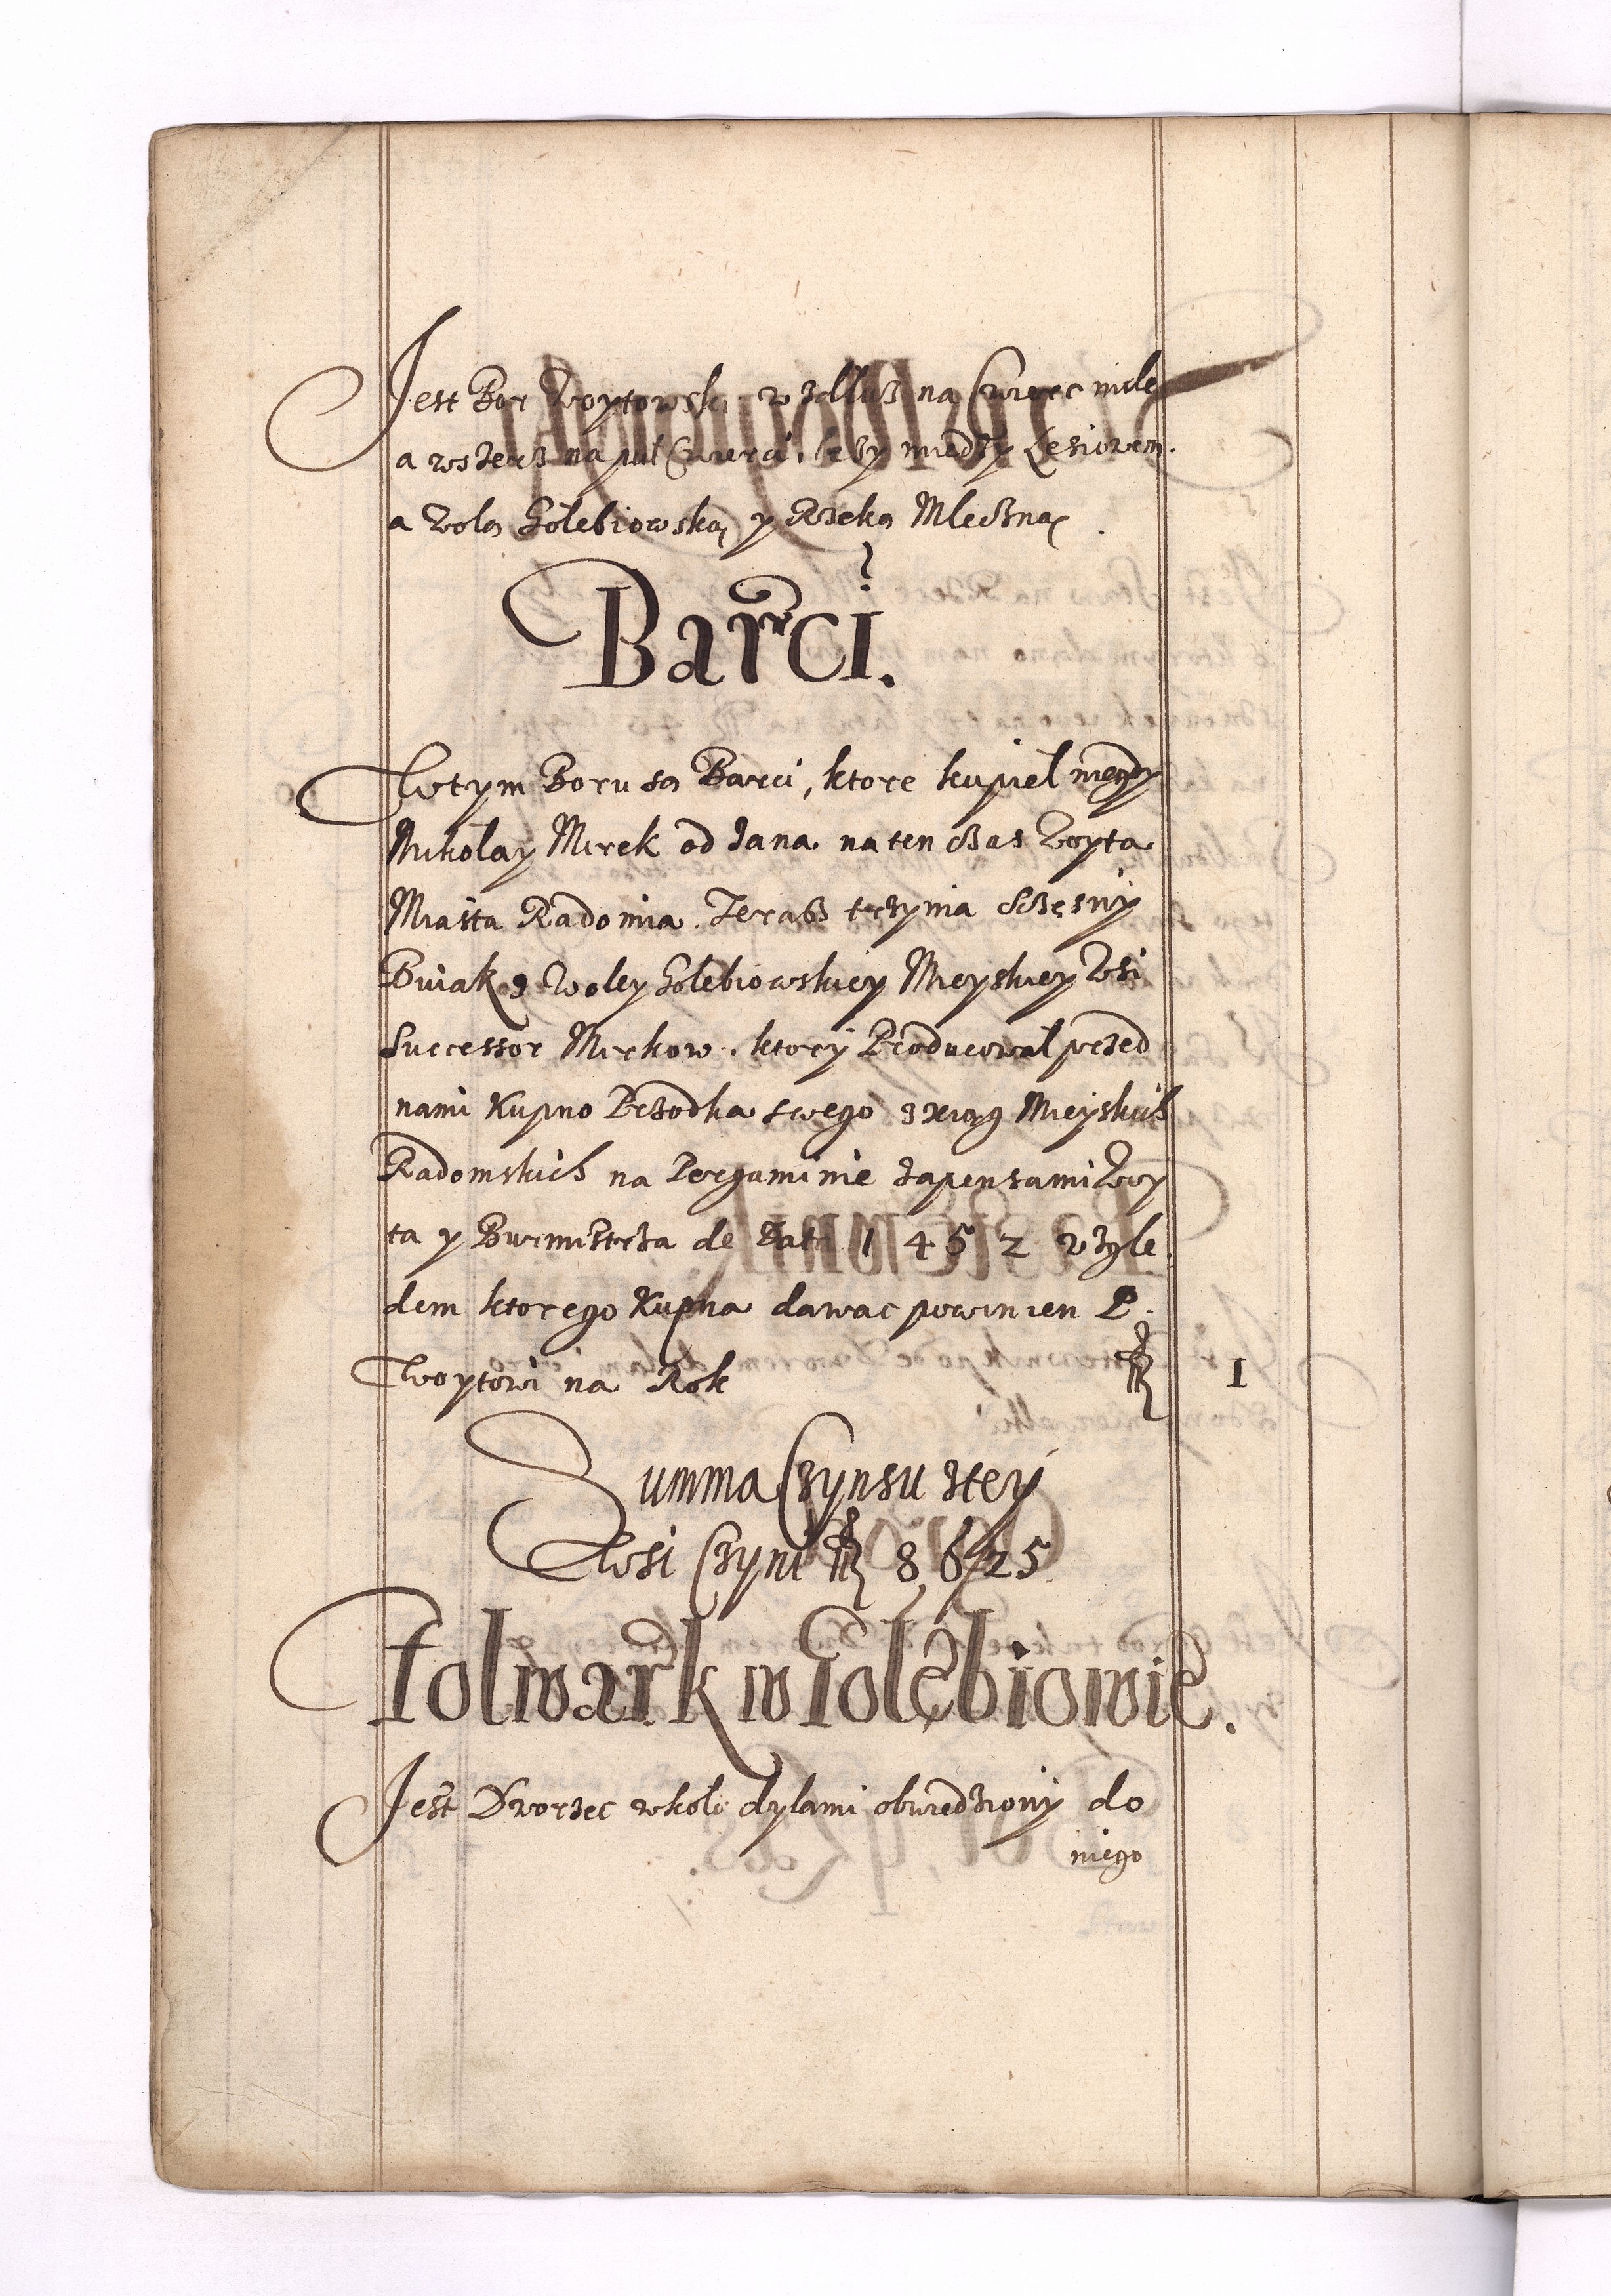 Jest Bor Woytowski wzdłusz na Cwierc mile
a wszerz na puł Cwierci, lezy między Lesiowem.
a Wolą Golębiowską y Rzeką Mleczną.
Barci.
W tym Boru są Barci, ktore kupieł niegdy
Mikolay Mirek od Jana na ten czas Woyta
Miasta Radomia. Terasz trzyma Sczęsny
Bniak z Woley Golębiowskiey Mieyskiey Wsi
Successor Mirkow. ktory Producował przed
nami Kupno Przodka swego z xiąg Mieyskich
Radomskich na Pergaminie Japensami Woy
ta y Burmistrza de Data 1452 wzglę
dem ktorego Kupna dawac powinien P.
Woytowi na Rok fl 1
Summa Czynsu ztey
Wsi Czyni fl 8, 6/25
Folwark w Golębiowie.
Jest Dworzec wkoło dylami obwiedziony do
niego